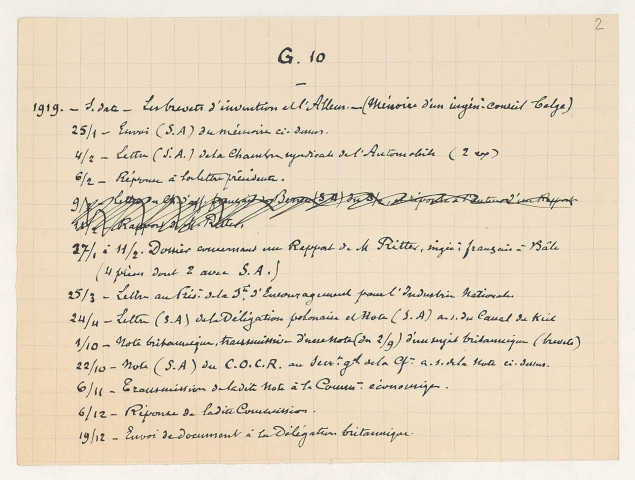 2
G. 10
1919. — S. date — Les brevets d'invention et l'Allem. — (Mémoire d'un ingén.-conseil belge)
25/1 — Envoi (S.A) du mémoire ci-dessus.
4/2 — Lettre (S.A.) de la Chambre syndicale de l'Automobile (2 ex)
6/2 — Réponse à la lettre précédente.
9/ — Lettre français à Berne (S.A) du et réponse à l'auteur d'un Rapport
11/2 Rapport de M. Ritter.
27/1 à 11/2. Dossier concernant un Rapport de M. Ritter, ingé: français à Bâle
(4 pièces dont 2 avec S.A.)
25/3 — Lettre au Prés. de la Sté d'Encouragement pour l'Industrie Nationale.
24/4 — Lettre (S.A) de la Délégation polonaise et Note (S.A) a.s. du Canal de Kiel
1/10 — Note britannique, transmission d'une note (du 2/9) d'un sujet britannique (brevets)
22/10 — Note (S.A) du C.O.C.R. au Secr. gl de la Cf. a.s. de la Note ci-dessus.
6/11 — Transmission de ladite Note à la Comm. économique.
6/12 — Réponse de ladite Commission.
19/12 — Envoi de document à la Délégation britannique.